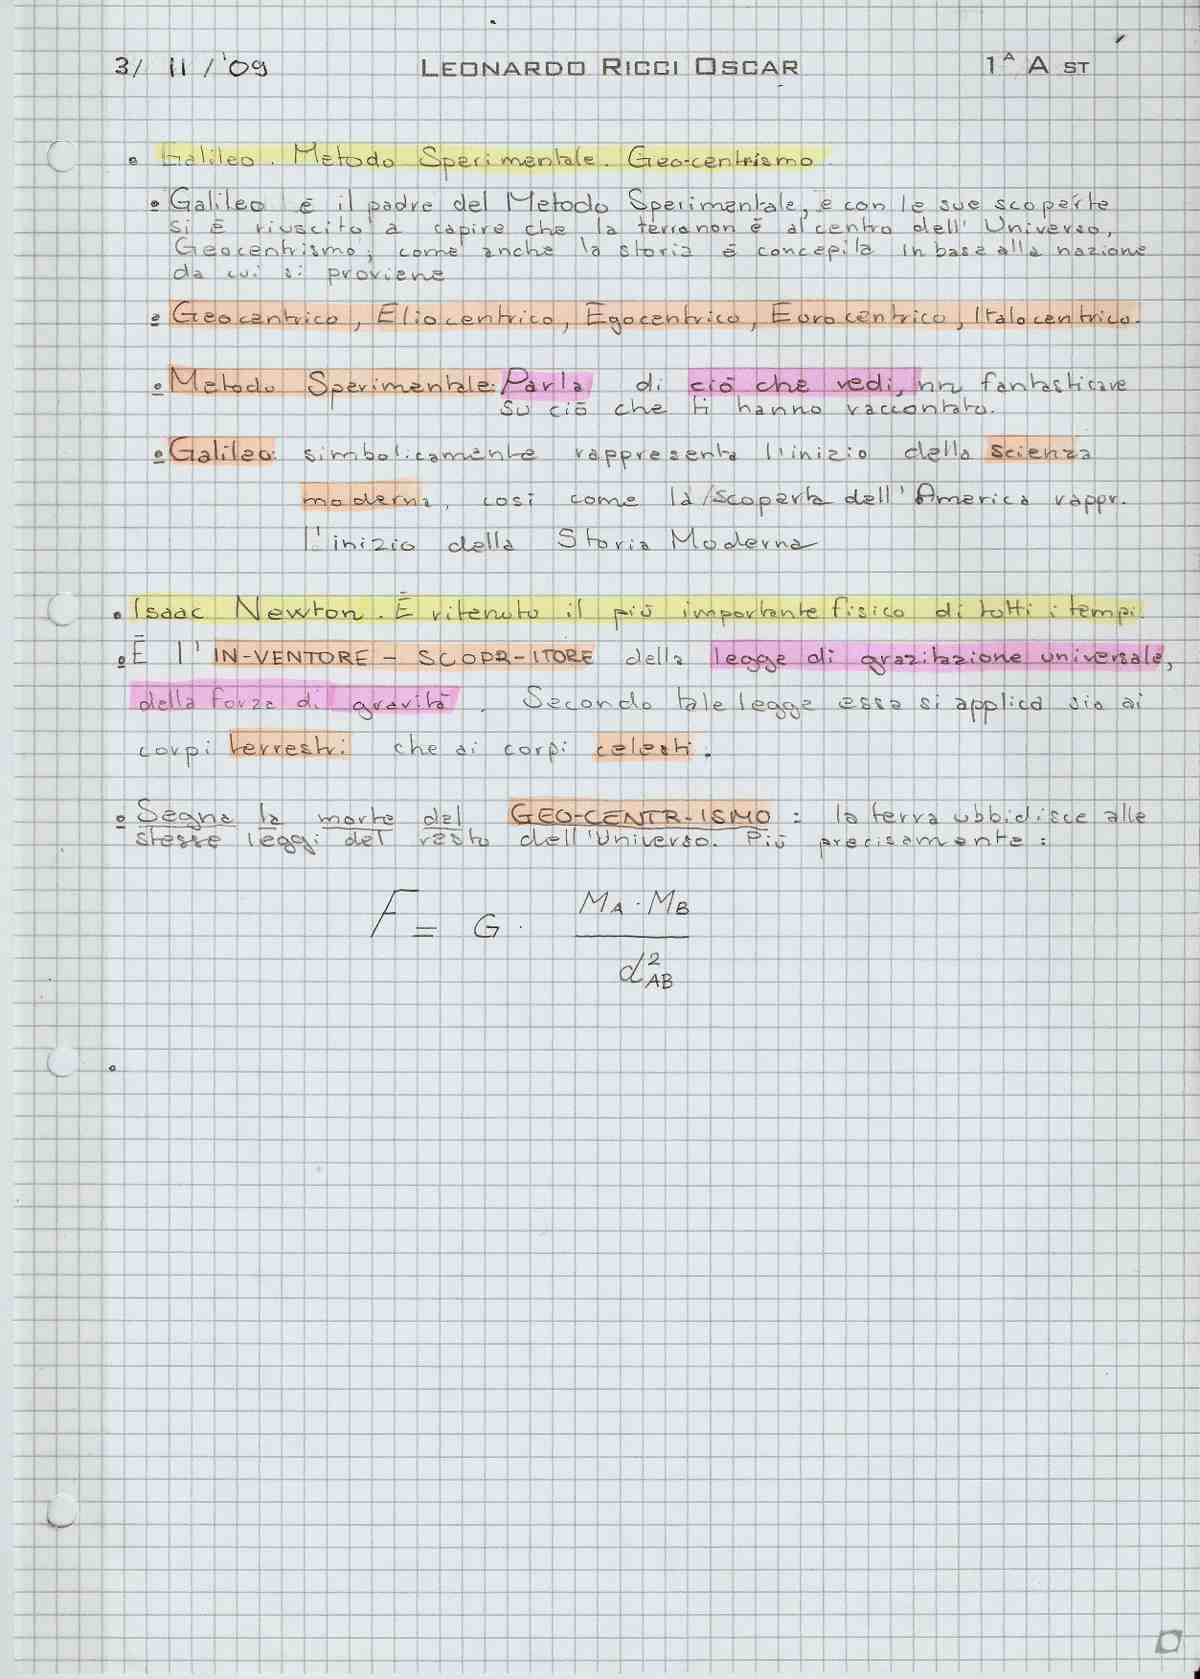 3/ 11 / '09 LEONARDO RICCI OSCAR 1ª A ST
• Galileo. Metodo Sperimentale. Geo-centrismo
• Galileo è il padre del Metodo Sperimentale, e con le sue scoperte
si è riuscito a capire che la terra non è al centro dell'Universo,
Geocentrismo; come anche la storia è concepita in base alla nazione
da cui si proviene
• Geocentrico, Eliocentrico, Egocentrico, Eurocentrico, Italocentrico.
• Metodo Sperimentale: Parla di ciò che vedi, nn fantasticare
su ciò che ti hanno raccontato.
• Galileo: simbolicamente rappresenta l'inizio della scienza
moderna, così come la scoperta dell'America rappr.
l'inizio della Storia Moderna
• Isaac Newton. È ritenuto il più importante fisico di tutti i tempi.
• È l'IN-VENTORE - SCOPR-ITORE della legge di grazitazione universale,
della forza di gravità. Secondo tale legge essa si applica sia ai
corpi terrestri che ai corpi celesti.
• Segna la morte del GEO-CENTR-ISMO: la terra ubbidisce alle
stesse leggi del resto dell'Universo. Più precisamente:
F = G · MA · MB / d²AB